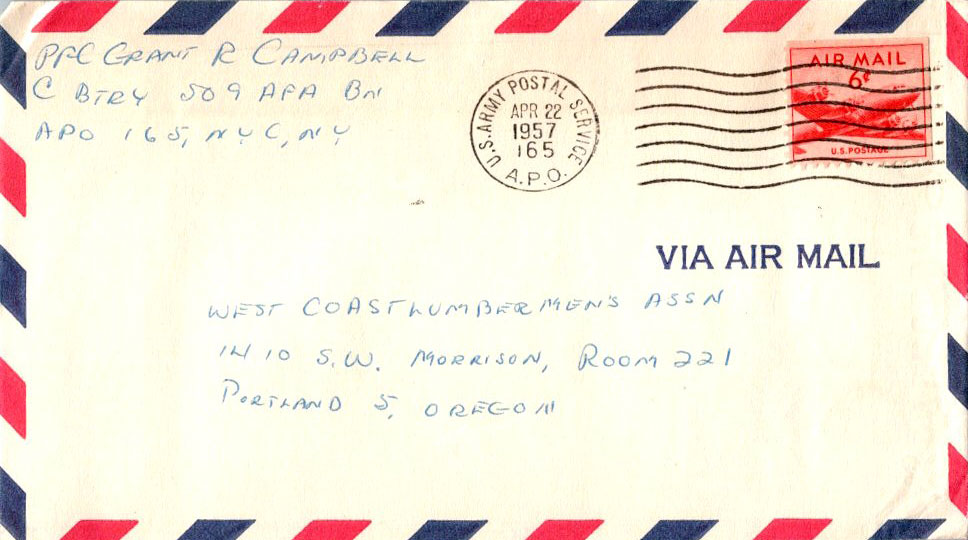 PFC GRANT R CAMPBELL
C BTRY 509 AFA BN
APO 165, N.Y.C, N.Y
U.S. ARMY POSTAL SERVICE
APR 22
1957
165
A.P.O.
AIR MAIL
6¢
U.S. POSTAGE
VIA AIR MAIL
WEST COAST LUMBERMEN'S ASSN
1410 S.W. MORRISON, ROOM 221
PORTLAND 5, OREGON